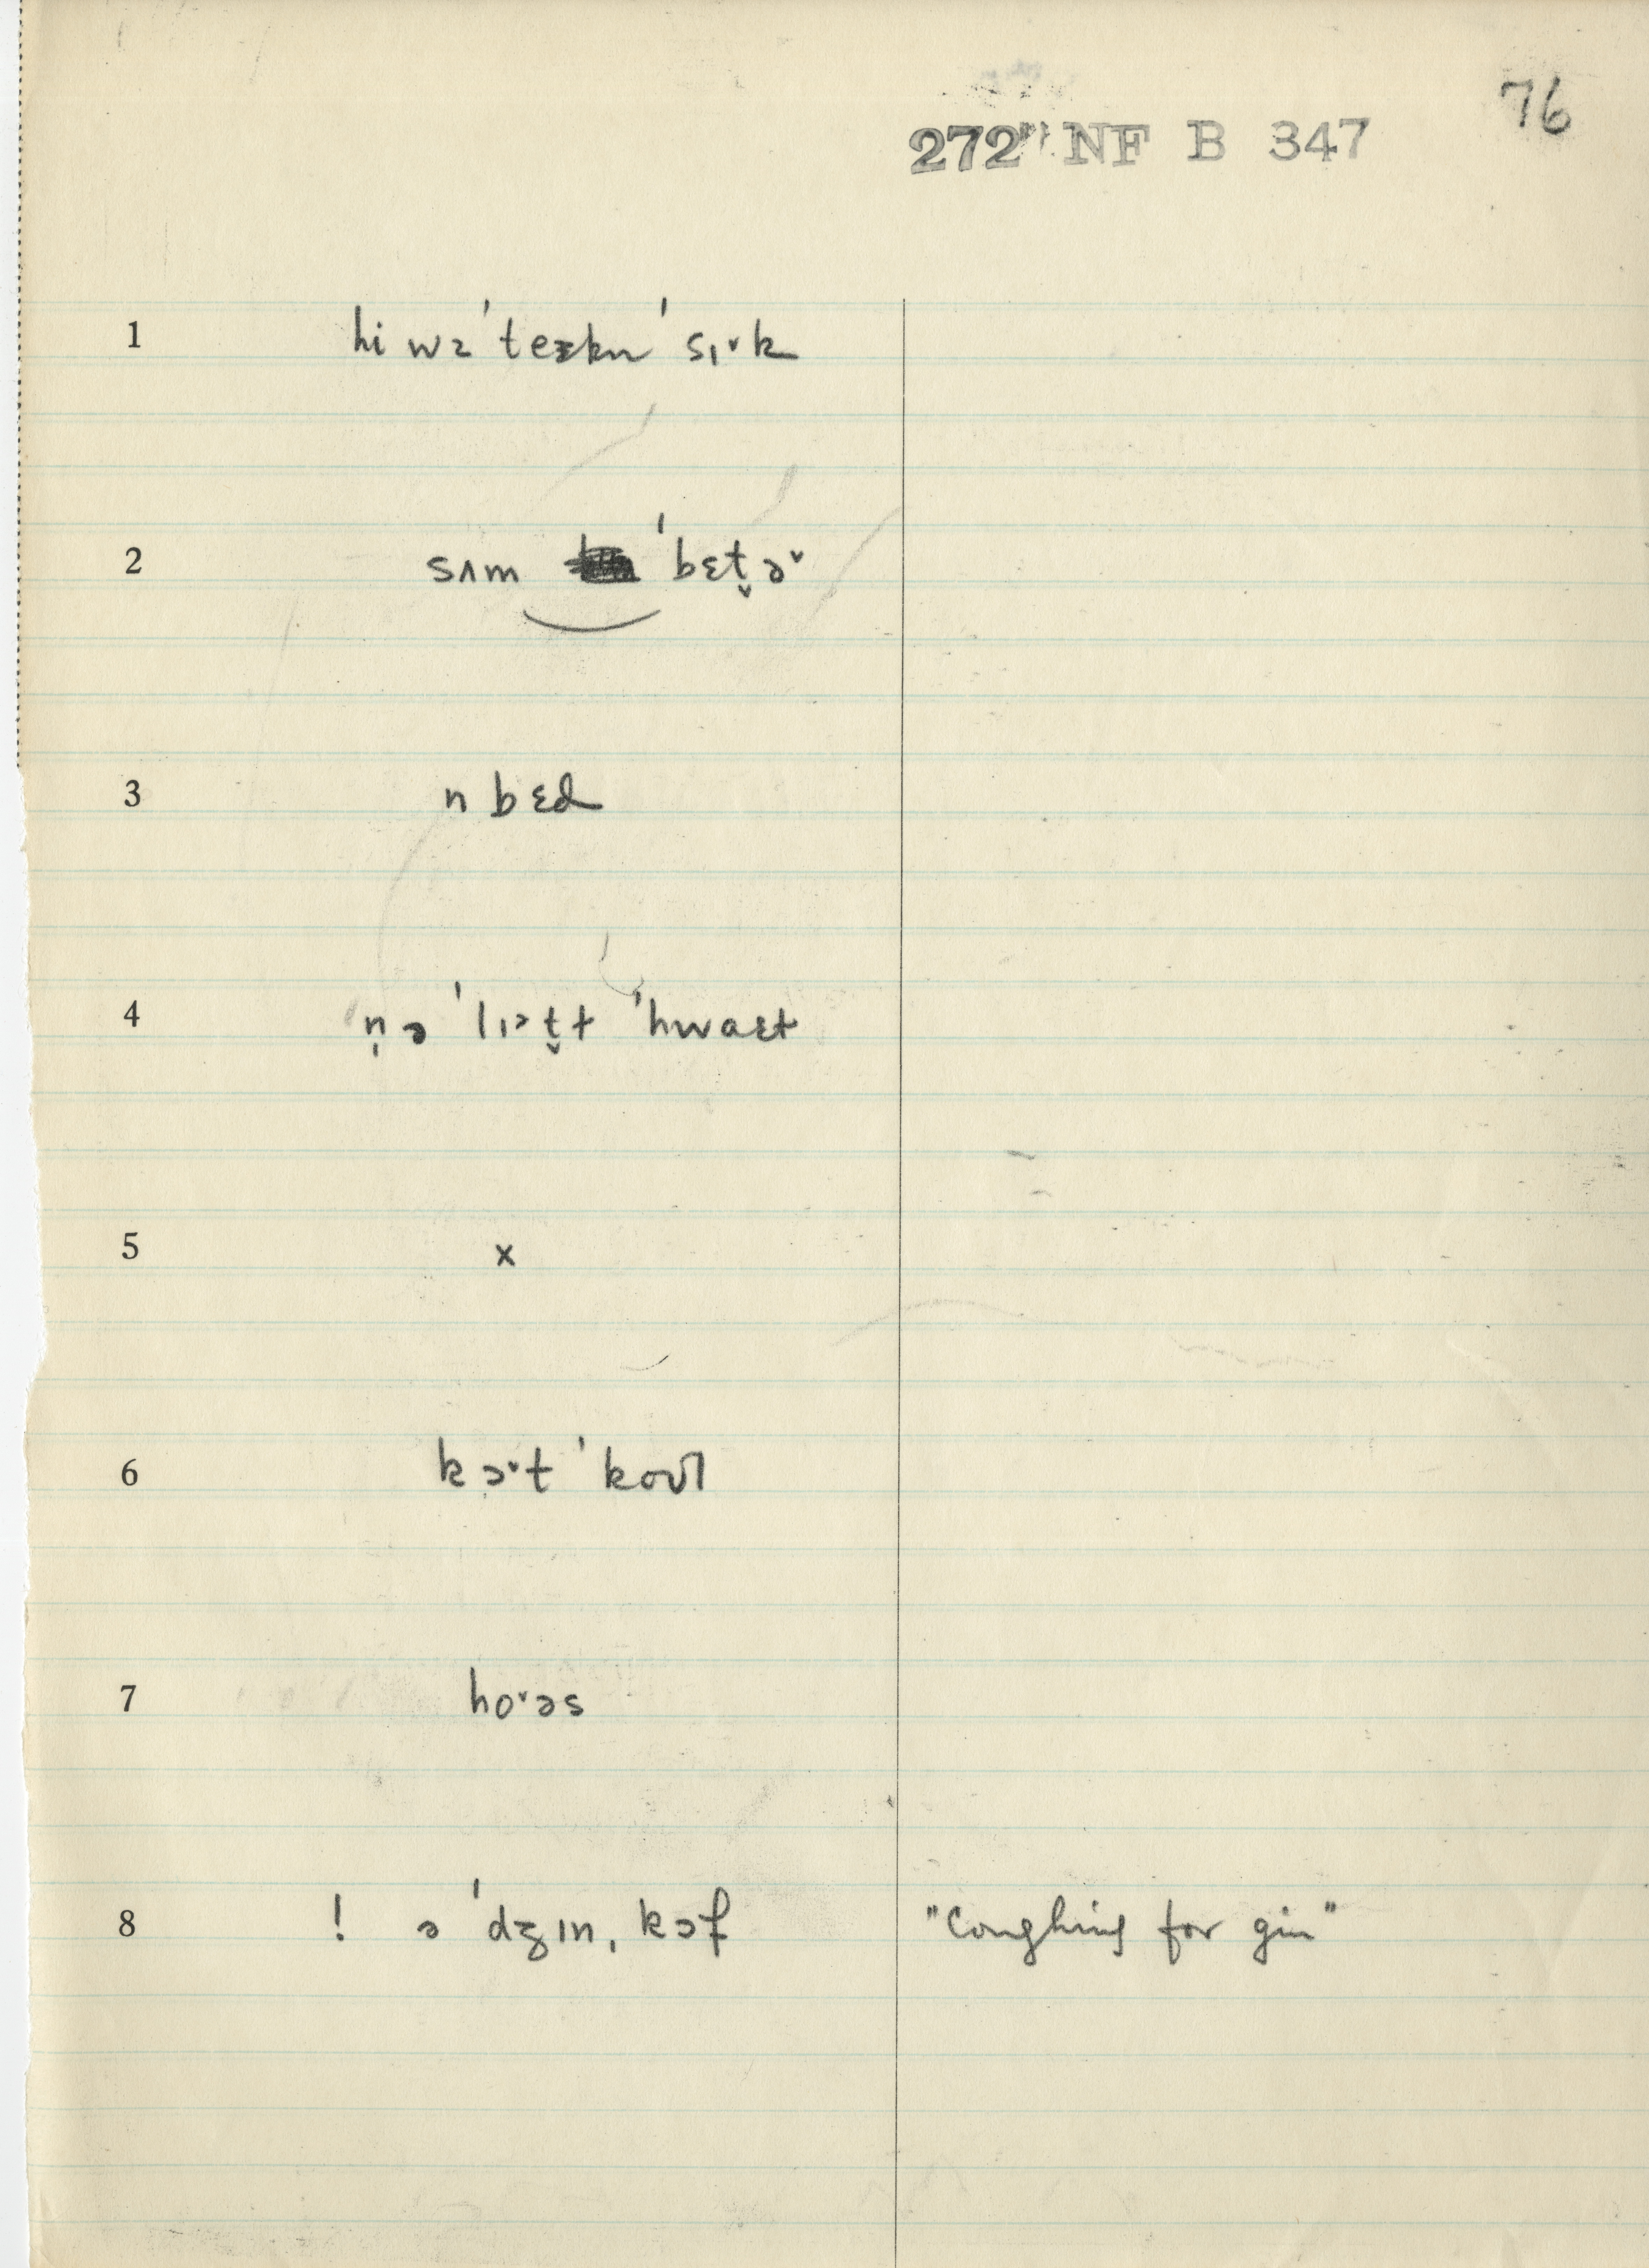 76
272 NF B 347
1 hi wɜ ˈteɛkn ˈsɪ˅k
2 sʌm ˈbɛt̬ə˅
3 n bɛd
4 n̩ə ˈlɪ>t̬ɫ ˈhwaɛt
5 x
6 kɔ˅t ˈkoʊl
7 ho˅əs
8 ! ə ˈdʒɪn ˌkɔf "Coughing for gin"